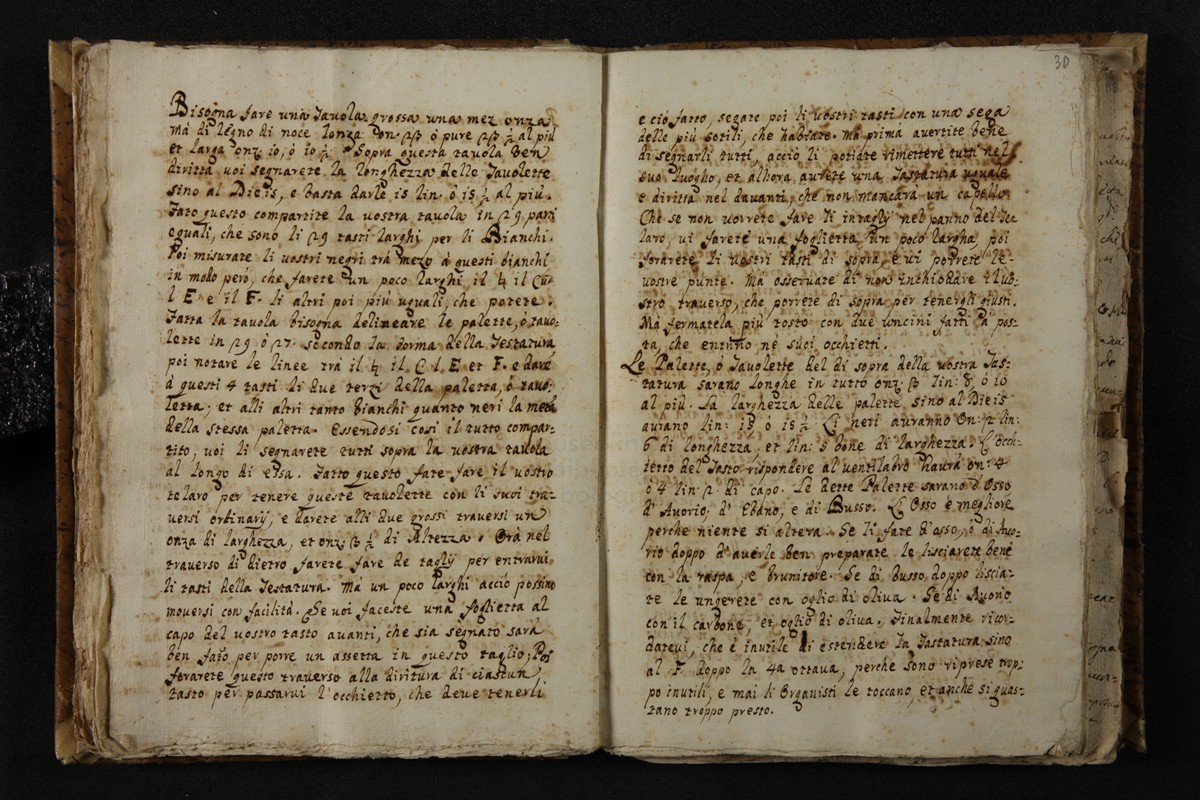 Bisogna fare una Tavola grossa una mez onza
Mà di legno di noce longa on: 25 ò pure 25 ½ al più
et larga onz: 10, ò 10 ½. Sopra questa tavola ben
diritta voi segnarete la longhezza delle Tavolette
sino al Dieis, e basta darle 15 lin. ò 15 ½ al più.
Fato questo compartite la vostra tavola in 29 parti
eguali, che sono li 29 tasti larghi per li Bianchi.
Poi misurate li vostri negri trà mezo à questi bianchi
in modo però, che farete un poco larghi il ♮ il C
l E e il F. li altri poi più uguali, che potete.
Fatta la tavola bisogna delineare le palette, ò tavo-
lette in 29 ò 27. secondo la forma della Testatura
poi notare le linee trà il ♮ il C l E et F. e dare
à questi 4 tasti li due terzi della paletta, ò tavo-
letta; et alli altri tanto bianchi quanto neri la metà
della stessa paletta. Essendosi così il tutto compar-
tito, voi li segnarete tutti sopra la vostra tavola
al longo di essa. Fatto questo fate fare il vostro
telaro per tenere queste tavolette con li suoi tra-
versi ordinarij, e darete alli due grossi traversi un
onza di larghezza, et onz: ½ di Altezza. Ora nel
traverso di dietro farete fare de taglij per entrarvi
li tasti della Testatura. Mà un poco larghi acciò possino
moversi con facilità. Se voi faceste una foglietta al
capo del vostro tasto avanti, che sia segnato sarà
ben fato per porre un assetta in questo taglio; Poi
forarete questo traverso alla diritura di ciascun
tasto per passarvi l'occhietto, che deve tenerli
30
e ciò fatto, segate poi li vostri tasti con una sega
delle più sotili, che habbiate. Mà prima avertite bene
di segnarli tutti, acciò li potiate rimettere tutti nel
suo luogho, et alhora avrete una Tastatura uguale
e diritta nel davanti, che non mancarà un capello.
Che se non vorrete fare li intaglij nel panno del Te-
laro, vi farete una foglietta un poco largha, poi
forarete li vostri tasti di sopra, e vi porrete le
vostre punte. Mà osservate di non inchiodare il vo-
stro traverso, che porrete di sopra per tenergli giusti.
Mà fermatela più tosto con due uncini fatti à pos-
ta, che entrino ne suoi occhietti.
Le Palette, ò Tavolette del di sopra della vostra Tas-
tatura sarano longhe in tutto onz: 5 lin: 8, ò 10
al più. La larghezza delle palette sino al Dieis
avrano lin: 15 ò 15 ½. Li neri avranno On: 2 lin:
6 di longhezza, et lin: 5 bone di larghezza. L'occh-
ietto del Tasto rispondere al ventilabro havrà on: 4
ò 4 lin: 2 di capo. Le dette Palette sarano d'Osso
d'Avorio, d'Ebano, e di Busso. Lo Osso è megliore
perche niente si altera. Se li fate d'osso, ò di Avo-
rio doppo d'averle ben preparate le lisciarete bene
con la raspa, e brunitore. Se di busso, doppo liscia-
te le ungerete con oglio di oliva. Se di Avorio
con il carbone, et oglio di oliva. Finalmente ricor-
datevi, che è inutile di estendere la Tastatura sino
al F doppo la 4a ottava, perche sono riprese trop-
po inutili, e mai li Organisti le toccano, et anche si guas-
tano troppo presto.